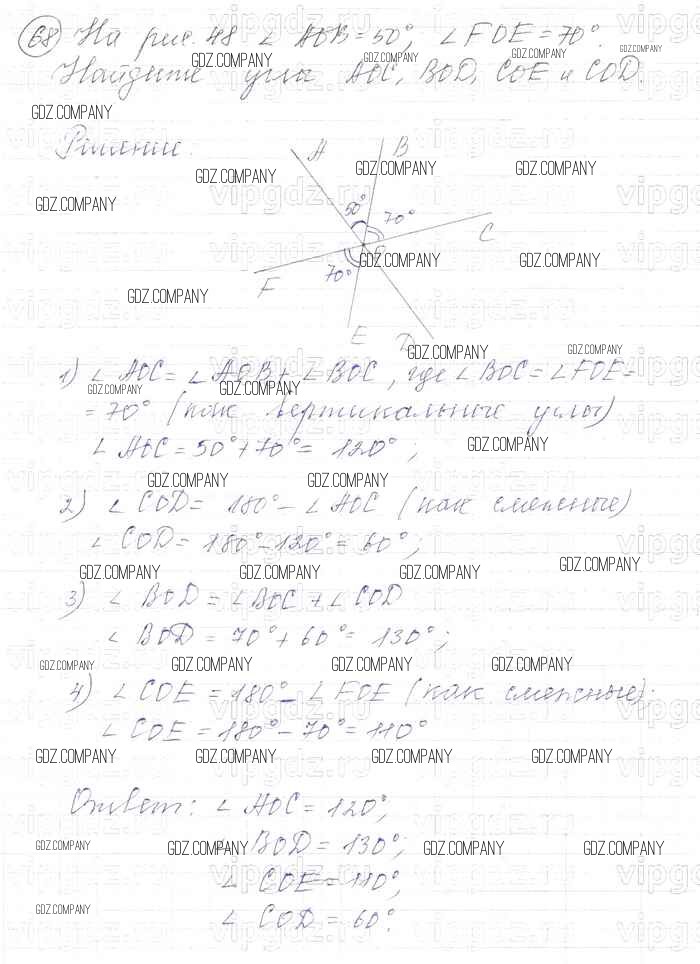 68 На рис. 48 ∠ AOB = 50°, ∠ FOE = 70°.
Найдите углы AOC, BOD, COE и COD.
Решение:
A
B
50°
70°
C
O
70°
F
E
D
1) ∠ AOC = ∠ AOB + ∠ BOC, где ∠ BOC = ∠ FOE =
= 70° (как вертикальные углы)
∠ AOC = 50° + 70° = 120°;
2) ∠ COD = 180° - ∠ AOC (как смежные)
∠ COD = 180° - 120° = 60°;
3) ∠ BOD = ∠ BOC + ∠ COD
∠ BOD = 70° + 60° = 130°;
4) ∠ COE = 180° - ∠ FOE (как смежные);
∠ COE = 180° - 70° = 110°
Ответ: ∠ AOC = 120°;
∠ BOD = 130°;
∠ COE = 110°;
∠ COD = 60°.
GDZ.COMPANY
vipgdz.ru